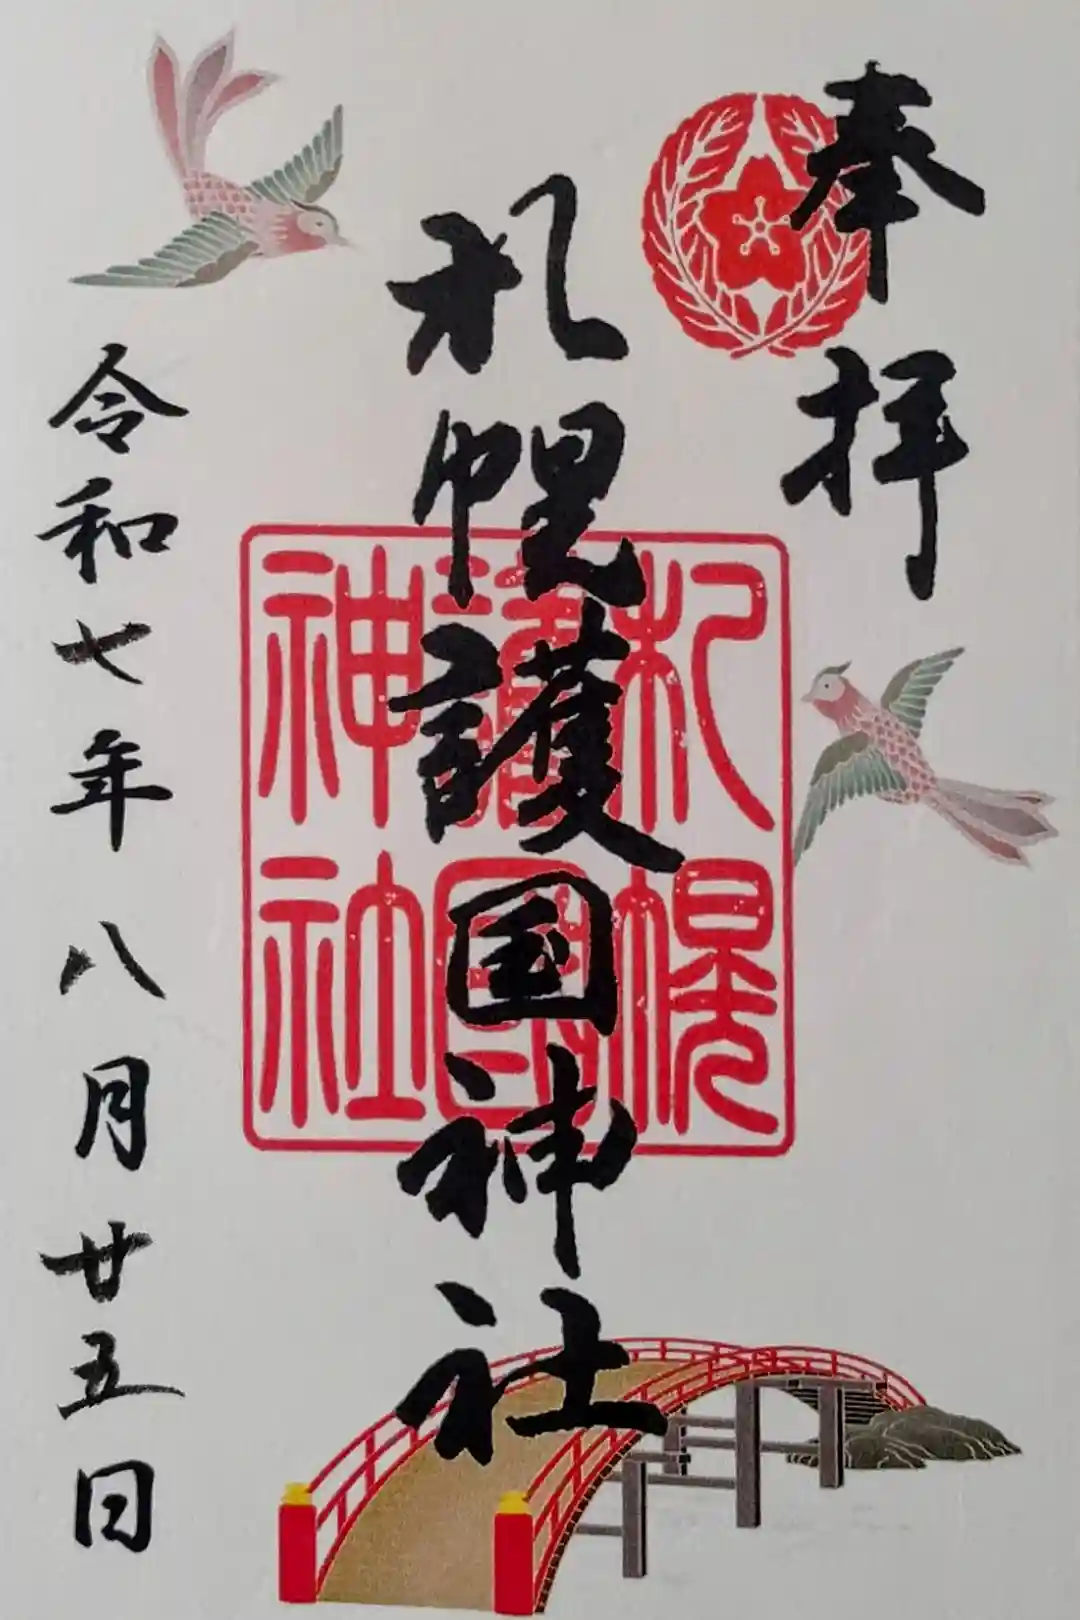 奉拝
札幌護国神社
札幌
護國
神社
令和七年八月廿五日